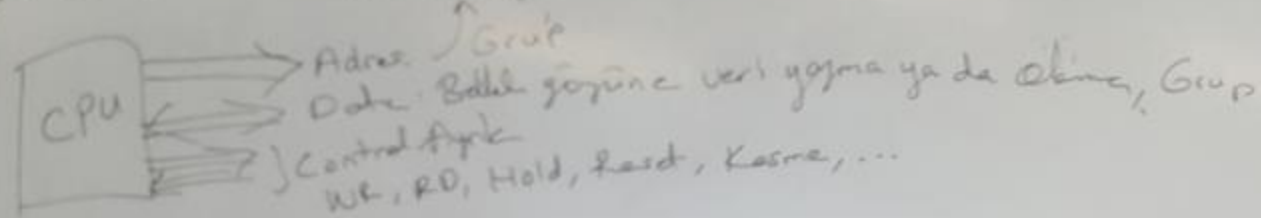 Grup
CPU
Adres
Data Bellek gözüne veri yazma ya da okuma, Grup
Control Ayrık
WR, RD, Hold, Reset, Kesme, ...